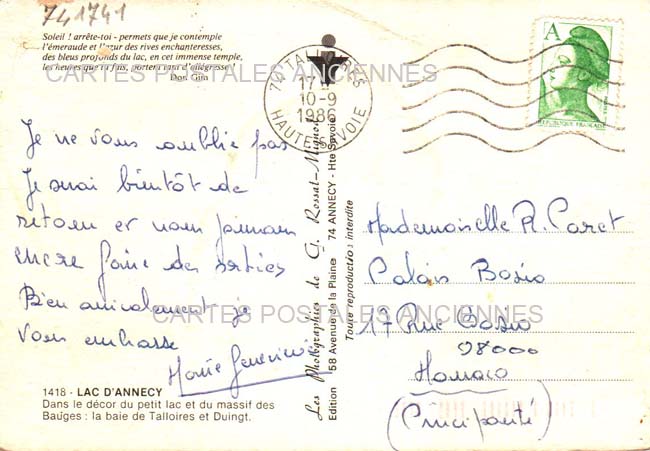 741741
Soleil ! arrête-toi - permets que je contemple
l'émeraude et l'azur des rives enchanteresses,
des bleus profonds du lac, en cet immense temple,
les heures que tu fais, portent tant d'allégresse !
Don Gim
CARTES POSTALES ANCIENNES
74 TALLOIRES
17 H
10-9
1986
HAUTE-SAVOIE
A
REPUBLIQUE FRANÇAISE
Je ne vous oublie pas
Je serai bientôt de
retour et nous pourrons
encore faire des sorties
Bien amicalement je
vous embrasse
Marie Geneviève
Les Photographies de G. Rossat-Mignod
Edition 58 Avenue de la Plaine - 74 ANNECY - Hte Savoie
Toute reproduction interdite
Mademoiselle R. Caret
Palais Bosio
CARTES POSTALES ANCIENNES
17 Rue Bosio
98000
Monaco
(Principauté)
1418 - LAC D'ANNECY
Dans le décor du petit lac et du massif des
Bauges : la baie de Talloires et Duingt.